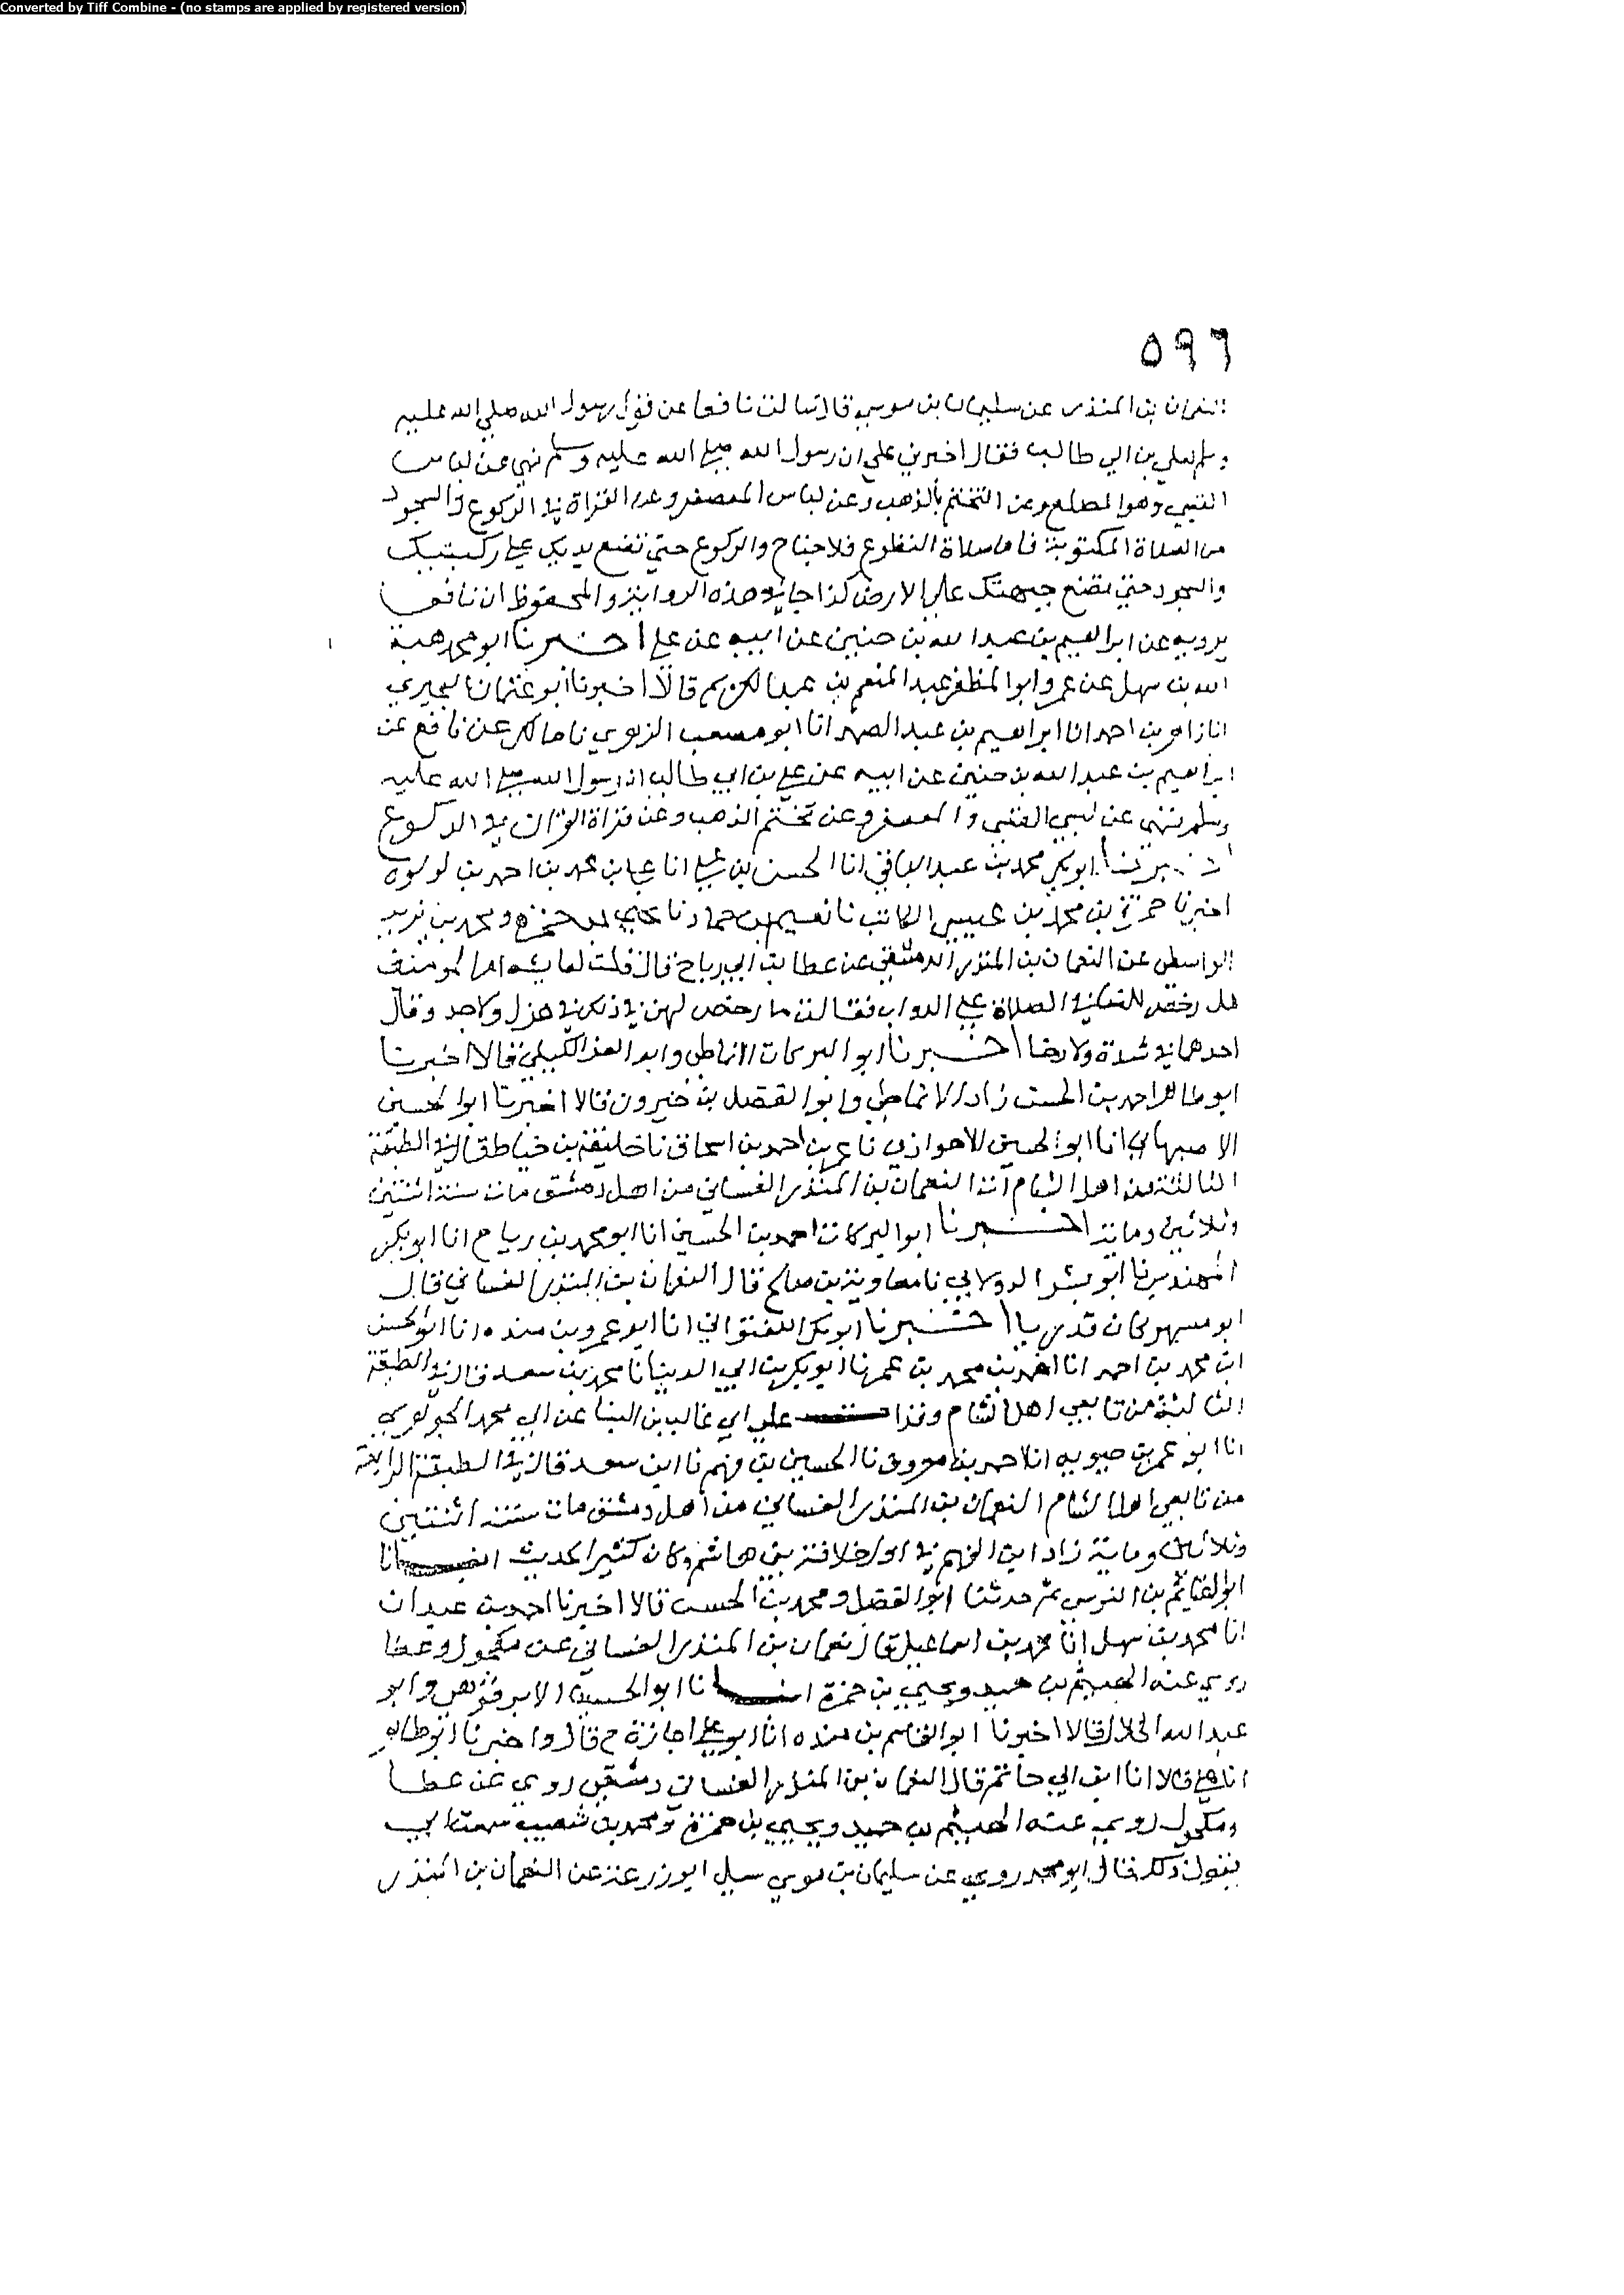 Converted by Tiff Combine - (no stamps are applied by registered version)
٥٩٦
النعمان بن المنذر عن سليمان بن موسى قال سالت نافعا عن قول رسول الله صلي الله عليه
وسلم لعلي بن ابي طالب فقال اخبرني علي ان رسول الله صلي الله عليه وسلم نهي عن لباس
القسي وهو المضلع وعن التختم بالذهب وعن لباس المعصفر وعن القراة في الركوع والسجود
من الصلاة المكتوبة فاما صلاة التطوع فلا جناح والركوع حتي تضع يديك علي ركبتيك
والسجود حتي تضع جبهتك علي الارض كذا جا في هذه الرواية والمحفوظ ان نافعا
يرويه عن ابراهيم بن عبد الله بن حنين عن ابيه عن علي اخبرنا ابو محمد هبة
الله بن سهل بن عمر وابو المظفر عبد المنعم بن عبد الكريم قالا اخبرنا ابو عثمان البحيري
انا زاهر بن احمد انا ابراهيم بن عبد الصمد انا ابو مصعب الزهري نا مالك عن نافع عن
ابراهيم بن عبد الله بن حنين عن ابيه عن علي بن ابي طالب ان رسول الله صلي الله عليه
وسلم نهي عن لبس القسي والمعصفر وعن تختم الذهب وعن قراة القران في الركوع
اخبرنا ابو بكر محمد بن عبد الباقي انا الحسن بن علي انا علي بن محمد بن احمد بن لولوة
اخبرنا حمزة بن محمد بن عيسي الكاتب نا نعيم بن حماد نا يحيي بن حمزة ومحمد بن يزيد
الواسطي عن النعمان بن المنذر الدمشقي عن عطا بن ابي رباح قال قلت لعايشة ام المومنين
هل رخص للنسا في الصلاة علي الدواب فقالت ما رخص لهن في ذلك في هزل ولا جد وقال
احدهما في شدة ولا رخا اخبرنا ابو البركات الانماطي وابو العز الكيلي قالا اخبرنا
ابو طاهر احمد بن الحسن زاد الانماطي وابو الفضل بن خيرون قالا اخبرنا ابو الحسين
الاصبهاني انا ابو الحسين الاهوازي نا عمر بن احمد بن اسحاق نا خليفة بن خياط قال في الطبقة
الثالثة من اهل الشام النعمان بن المنذر الغساني من اهل دمشق مات سنة اثنتين
وثلاثين وماية اخبرنا ابو البركات احمد بن الحسين انا ابو محمد بن رباح انا ابو بكر
المهندس نا ابو بشر الدولابي نا معاوية بن صالح قال النعمان بن المنذر الغساني قال
ابو مسهر كان قدريا اخبرنا ابو بكر اللفتواني انا ابو عمرو بن منده انا ابو الحسن
ابن محمد بن احمد انا احمد بن محمد بن عمر نا ابو بكر بن ابي الدنيا نا محمد بن سعد قال في الطبقة
الثالثة من تابعي اهل الشام وقرا علي ابي غالب بن البنا عن ابي محمد الجوهري
انا ابو عمر بن حيويه انا احمد بن معروف نا الحسين بن فهم نا ابن سعد قال في الطبقة الرابعة
من تابعي اهل الشام النعمان بن المنذر الغساني من اهل دمشق مات سنة اثنتين
وثلاثين وماية زاد ابن الفهم في اول خلافة بني هاشم وكان كثير الحديث انبانا
ابو الغنايم بن النرسي ثم حدثنا ابو الفضل ومحمد بن الحسن قالا اخبرنا احمد بن عبدان
انا محمد بن سهل انا محمد بن اسماعيل قال نعمان بن المنذر الغساني عن مكحول وعطا
روي عنه الهيثم بن حميد ويحيي بن حمزة انبانا ابو الحسين الابرقوهي وابو
عبد الله الخلال قالا اخبرنا ابو القاسم بن منده انا ابو علي اجازة ح قال واخبرنا ابو طاهر
انا علي قالا انا ابن ابي حاتم قال النعمان بن المنذر الغساني دمشقي روي عن عطا
ومكحول روي عنه الهيثم بن حميد ويحيي بن حمزة ومحمد بن شعيب سمعت ابي
يقول ذلك قال ابو محمد روي عن سليمان بن موسي سيل ابو زرعة عن النعمان بن المنذر